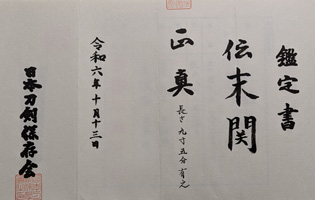 鑑定書
伝末関
正真
長さ九寸五分有之
令和六年十月十三日
日本刀剣保存会